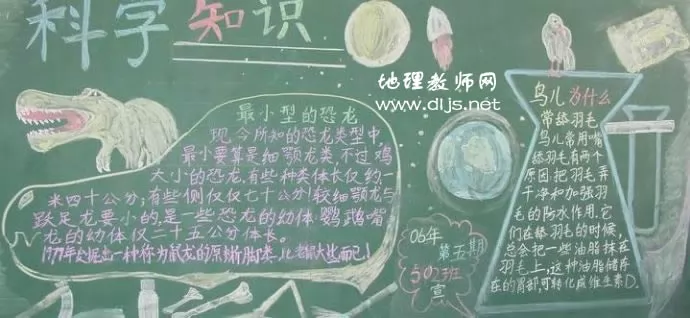 科学知识
地理教师网
www.dljs.net
最小型的恐龙
现今所知的恐龙类型中,
最小要算是细颚龙类,不过鸡
大小的恐龙.有些种类体长仅约一
米四十公分;有些侧仅仅七十公分!较细颚龙与
跃足龙要小的是一些恐龙的幼体.鹦鹉嘴
龙的幼体仅二十五公分体长。
一种称为鼠龙的原
06年
第五期
502班
宣
鸟儿为什么
常舔羽毛
鸟儿常用嘴
舔羽毛有两个
原因把羽毛弄
干净和加强羽
毛的防水作用.它
们在舔羽毛的时候,
总会把一些油脂抹在
羽毛上,这种油脂储存
在的胃部,可转化成维生素D.